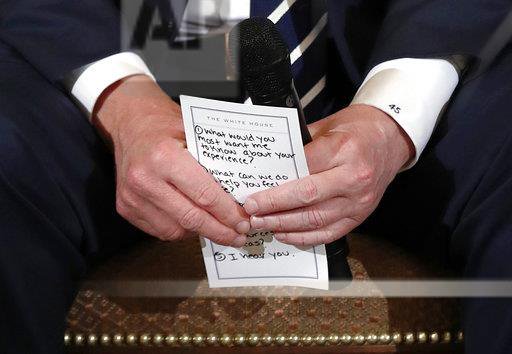 AP
45
THE WHITE HOUSE
① What would you
most want me
to know about your
experience?
What can we do
help you feel
⑤ I hear you.